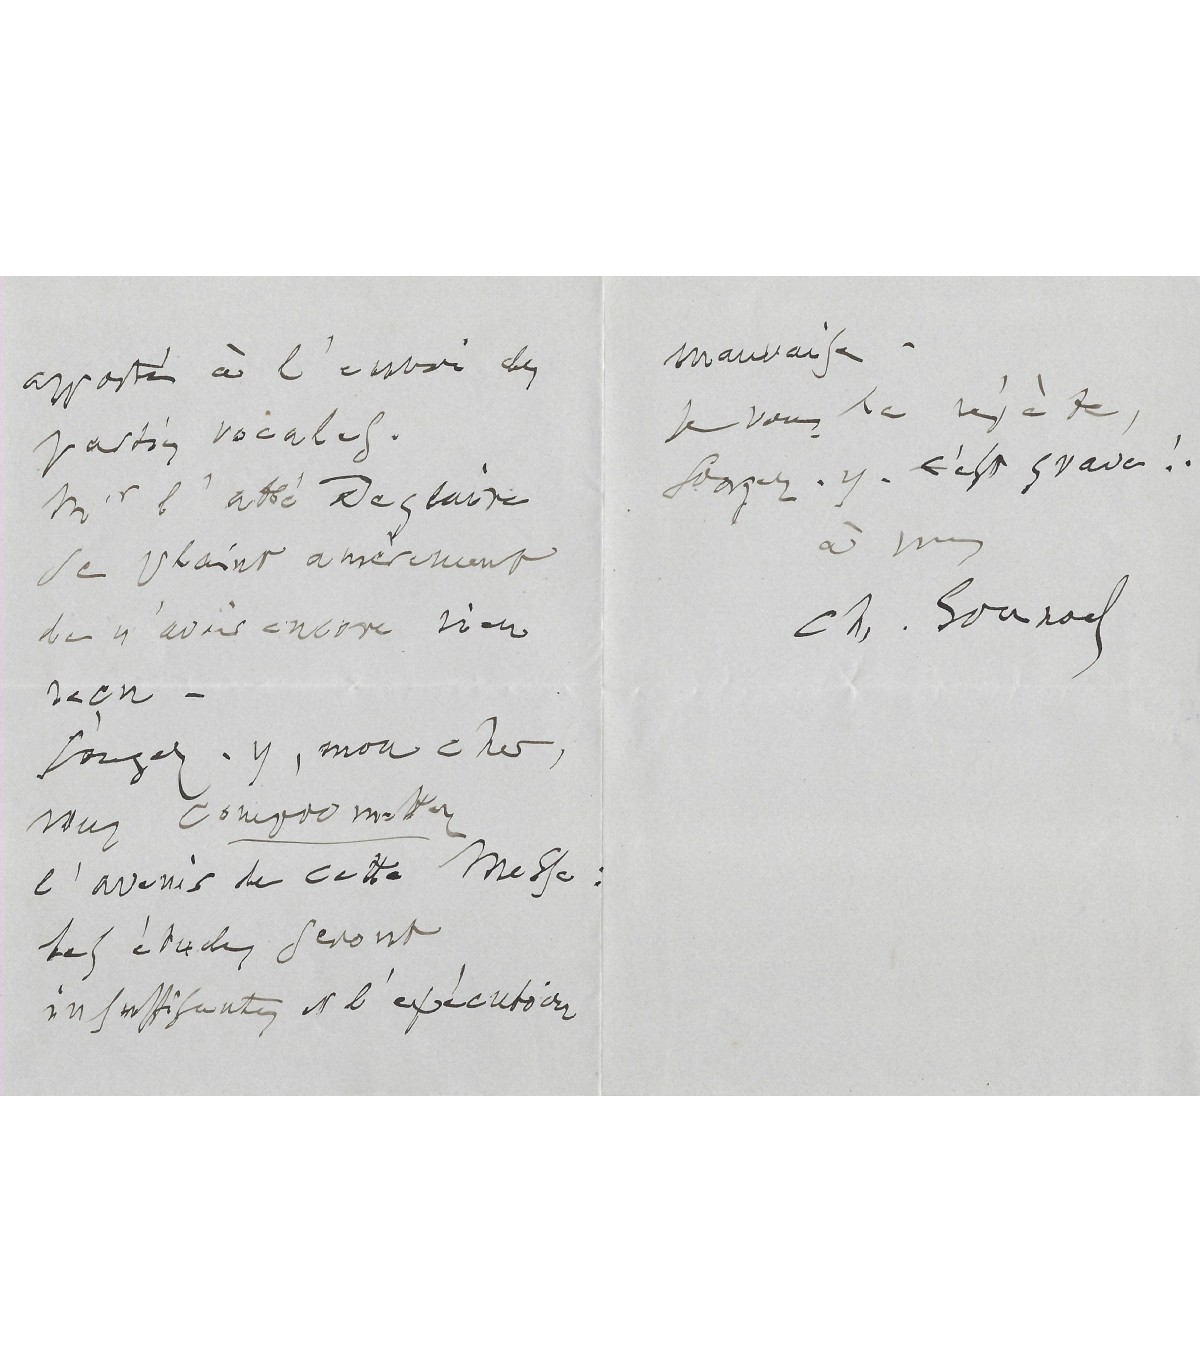 apportés à l'envoi des
parties vocales.
Mr l'abbé Deglaire
se plaint amèrement
de n'avoir encore rien
reçu -
Songez-y, mon cher,
vous compromettez
l'avenir de cette Messe :
les études seront
insuffisantes et l'exécution
mauvaise -
Je vous le répète,
songez-y. c'est grave !.
à vous
Ch. Gounod